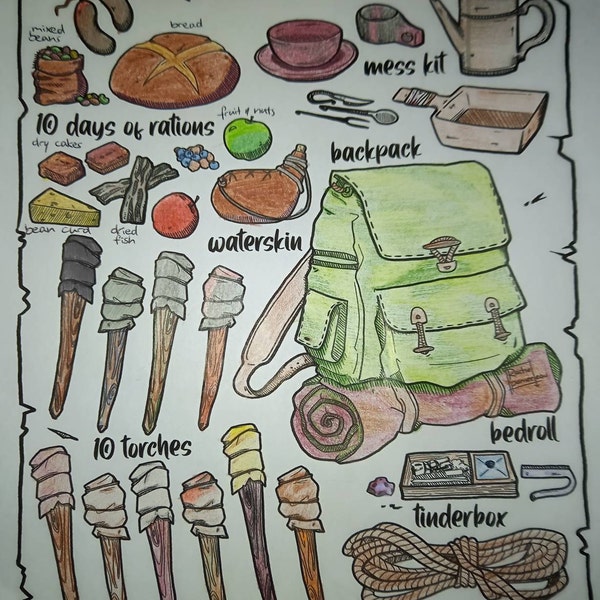 mixed
beans
bread
mess kit
fruit & nuts
10 days of rations
dry cakes
backpack
bean curd
dried
fish
waterskin
10 torches
bedroll
tinderbox